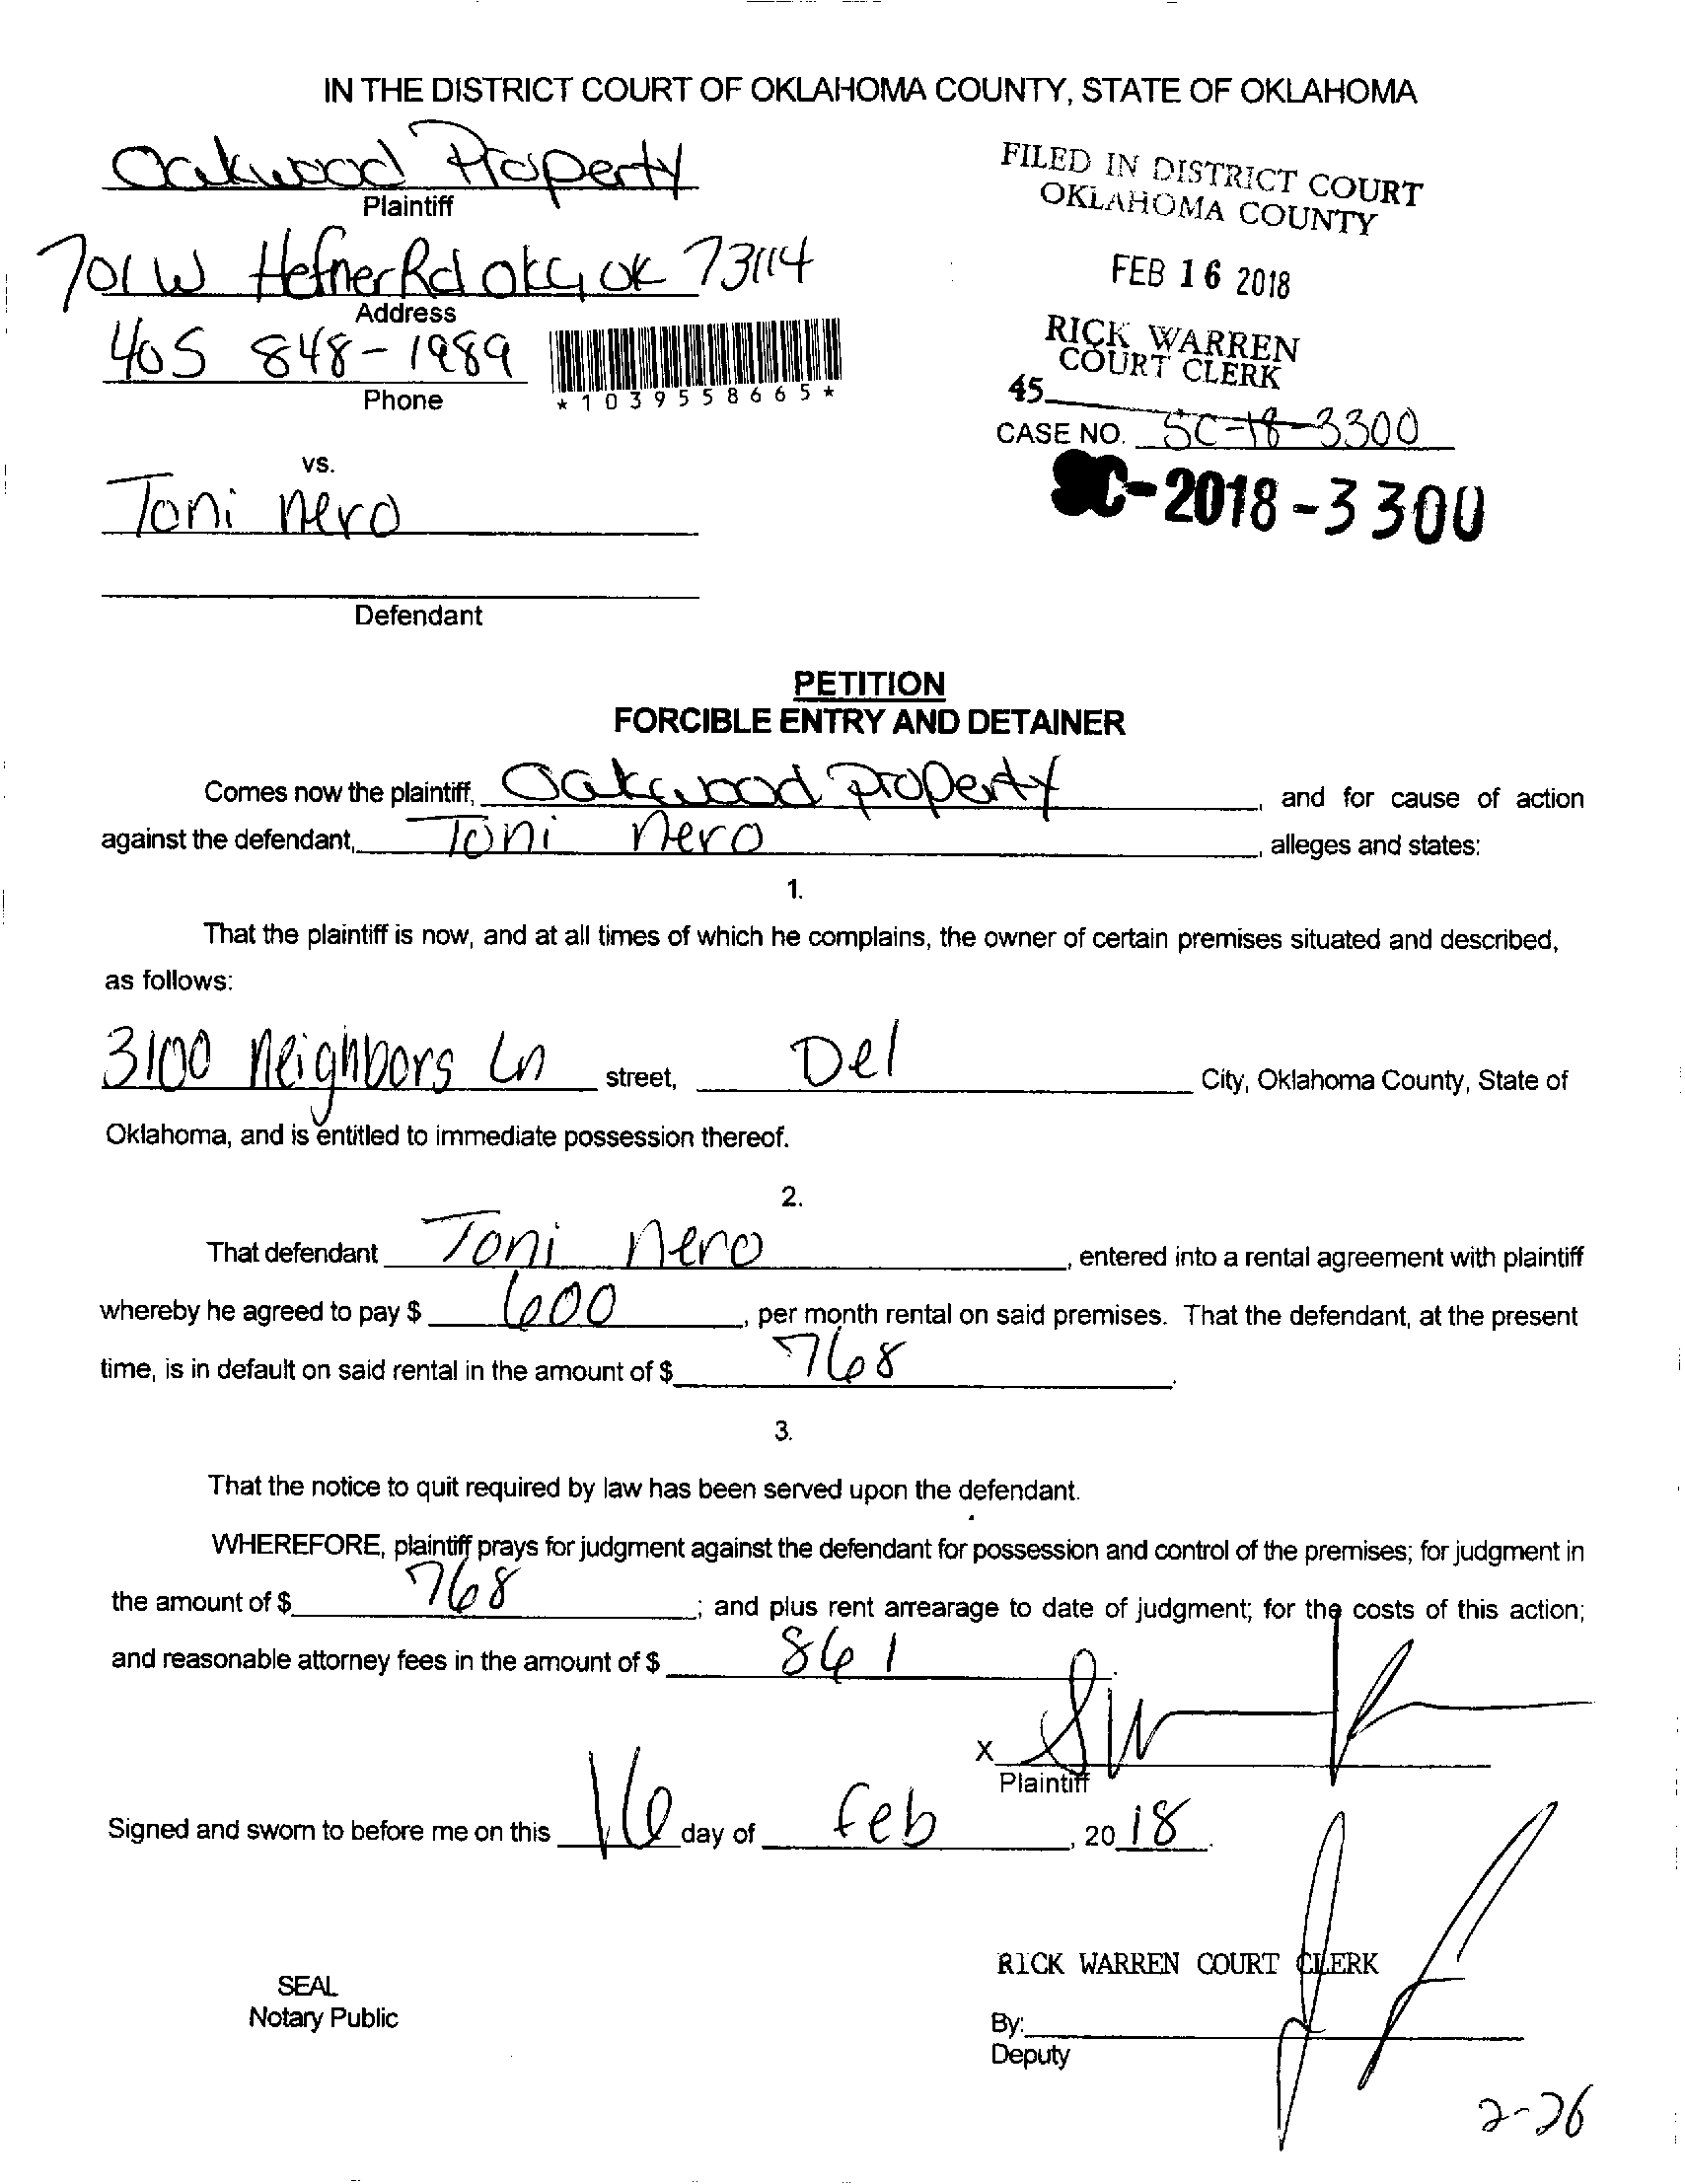 IN THE DISTRICT COURT OF OKLAHOMA COUNTY, STATE OF OKLAHOMA
Oakwood Property
Plaintiff
701 W Hefner Rd okc, ok 73114
Address
405 848-1989
Phone
*1039558665*
FILED IN DISTRICT COURT
OKLAHOMA COUNTY
FEB 16 2018
RICK WARREN
COURT CLERK
45
CASE NO. SC-18-3300
SC-2018-3300
vs.
Toni Nero
Defendant
PETITION
FORCIBLE ENTRY AND DETAINER
Comes now the plaintiff, Oakwood Property, and for cause of action
against the defendant, Toni Nero, alleges and states:
1.
That the plaintiff is now, and at all times of which he complains, the owner of certain premises situated and described,
as follows:
3100 Neighbors Ln street, Del City, Oklahoma County, State of
Oklahoma, and is entitled to immediate possession thereof.
2.
That defendant Toni Nero, entered into a rental agreement with plaintiff
whereby he agreed to pay $ 600, per month rental on said premises. That the defendant, at the present
time, is in default on said rental in the amount of $ 768.
3.
That the notice to quit required by law has been served upon the defendant.
WHEREFORE, plaintiff prays for judgment against the defendant for possession and control of the premises; for judgment in
the amount of $ 768; and plus rent arrearage to date of judgment; for the costs of this action;
and reasonable attorney fees in the amount of $ 861.
X
Plaintiff
Signed and sworn to before me on this 16 day of Feb, 20 18.
RICK WARREN COURT CLERK
SEAL
Notary Public
By:
Deputy
2-26